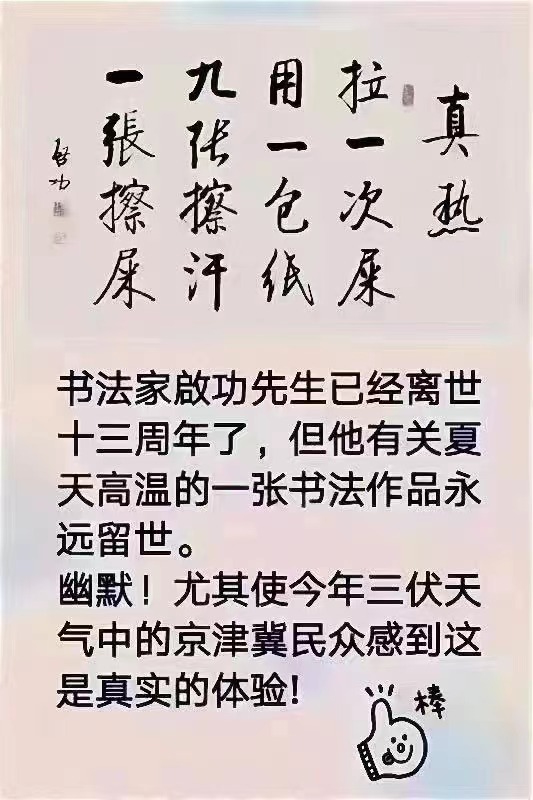 真热
拉一次屎
用一包纸
九张擦汗
一張擦屎
啟功
书法家啟功先生已经离世
十三周年了，但他有关夏
天高温的一张书法作品永
远留世。
幽默！尤其使今年三伏天
气中的京津冀民众感到这
是真实的体验!
棒